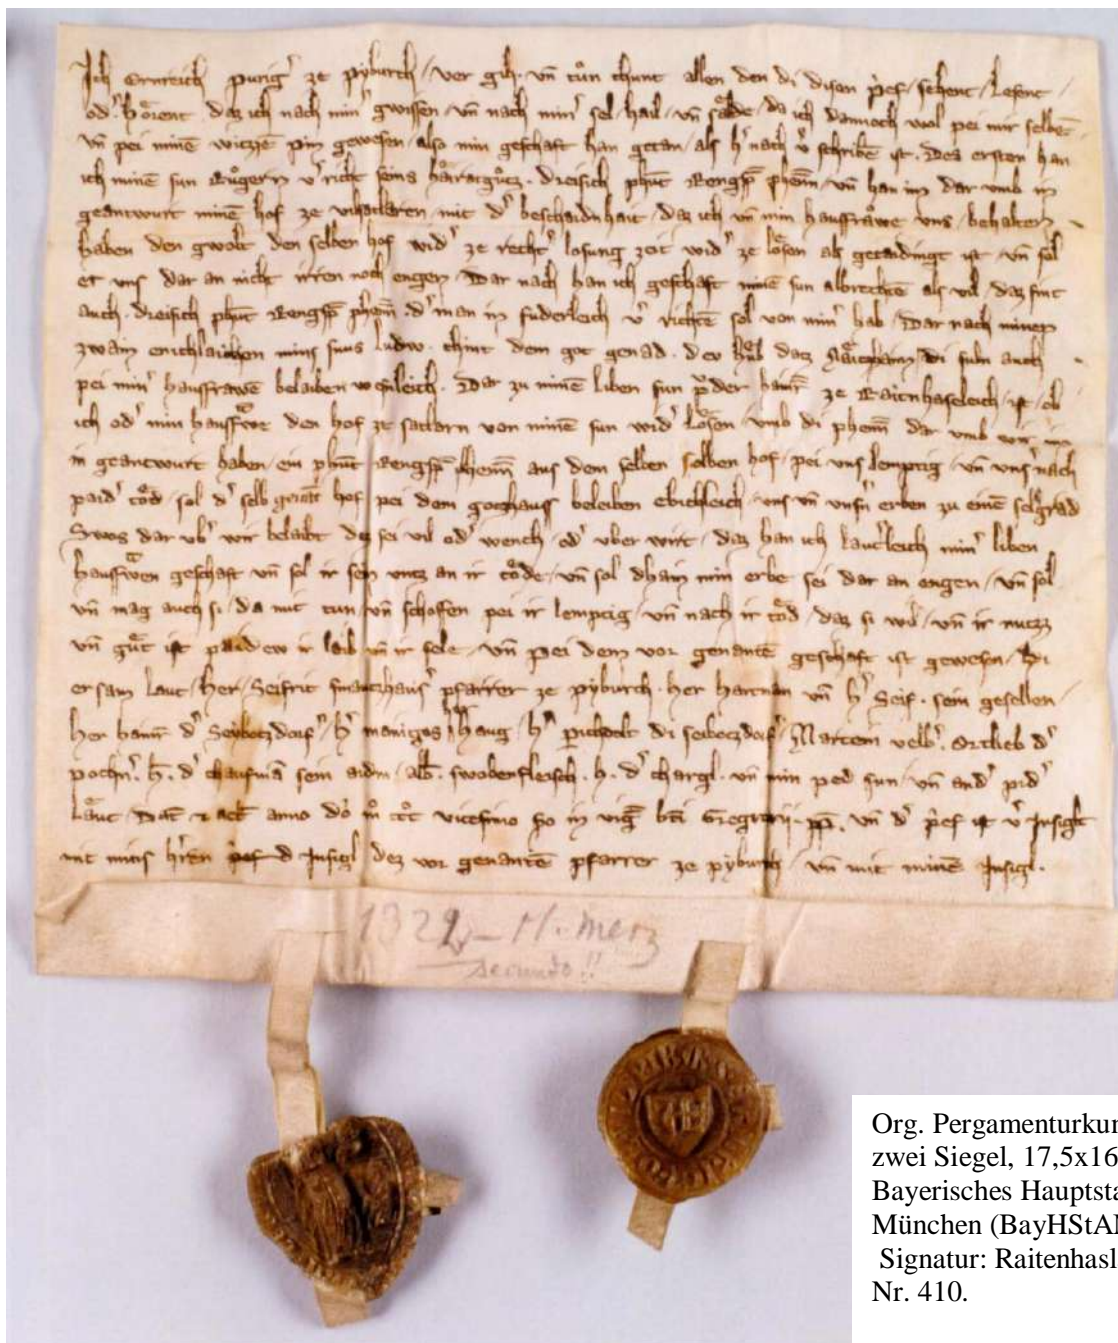 Ich Ernreich purig' ze pyburch / ver gih / vn̄ tůn chunt allen den di disen p'ef / sehent / Lesent /
od' hoͤrent daz ich nach min' gwissen / vn̄ nach min' sel / hail / vn̄ saͤlde / da ich dannoch wol pei mir selbē
vn̄ pei minē witzē pin gewesen / also min geschaft han getan / als h' nach v' schribē ist . Des ersten han
ich minē sun Ruͦgern v' richt seins . dreisich phūt Rengsp' phenn̄ / vn̄ han im dar vmb in
geantwurt minē hof ze mit d' beschaidnhait / daz ich vn̄ min hausfraͤwe vns / behalten
haben den gwalt den selben hof wid' ze recht' losung zeit wid' ze loͤsen als getaidingt ist / vn̄ sol
er vns dar an nicht irren noch engen / Dar nach han ich geschaft minē sun albrechtē als vil / daz sint
auch . dreisich phūt Rengsp' phenn̄ . d' man in fuderleich v' richtē sol von min' hab / Dar nach minen
zwain enichlaichen mins suns ludw . chint dem got genad . dev hůb daz di suln auch
pei min' hausfrawē belaiben . Dar zu minē liben sun pͮder hainr' ze Raitnhaseleich / ist / ob
ich od' min hausfͣwe den hof ze satlarn von minē sun wid' Loͤsen / vmb di phenn̄ dar vmb wir im
in geantwurt haben / ein phūt Rengsp' phenn̄ aus dem selben selben hof / pei vns lemptig / vn̄ vns' nach
paid' toͤd / sol d' selb hof pei dem gotzhaus beleiben ebichleich / vns vn̄ vnsn' erben zu einē selgrad
Swas dar vb' wir belaibt dez sei vil od' wench / od' vber wirt / daz han ich laut'leich min' liben
hausfͣwen geschaft vn̄ sol ir sein vntz an ir toͤde / vn̄ sol dhain min erbe sei dar an engen / vn̄ sol
vn̄ mag auch si / da mit tun / vn̄ schaffen pei ir lemptig / vn̄ nach ir toͤd / daz si wil / vn̄ ir nutz
vn̄ guͤt ist paidew ir leib vn̄ ir sele / vn̄ pei dem vor genantē geschaft ist gewesen / Di
ersam laut / her / Seifrit pfarrer ze pyburch . her hartman vn̄ h' Seif . sein gesellen /
her hainr' d' Seibotzdorf' / h' manigos her haug / h' di seibotzdorf' / Martein velb' . Ortlieb d'
pochn' . h . d' chaufmā sein aidm / alb' . swobenfleisch . h . d' chargl . vn̄ min ped sun / vn̄ and' pid'
Laͤut / Dat' et act' anno do' mͦ cͦcͦcͦ vicesimo in vig' bt̄i Gregorii pp̄ . vn̄ d' p'ef ist v' Insigelt
mit mins h'ren Insigl dez vor genantē pfarrer ze pyburch / vn̄ mit minē Insigl .
1322 – 11. Merz
secundo!!
Org. Pergamenturkun
zwei Siegel, 17,5x16
Bayerisches Hauptsta
München (BayHStAM
Signatur: Raitenhasl
Nr. 410.